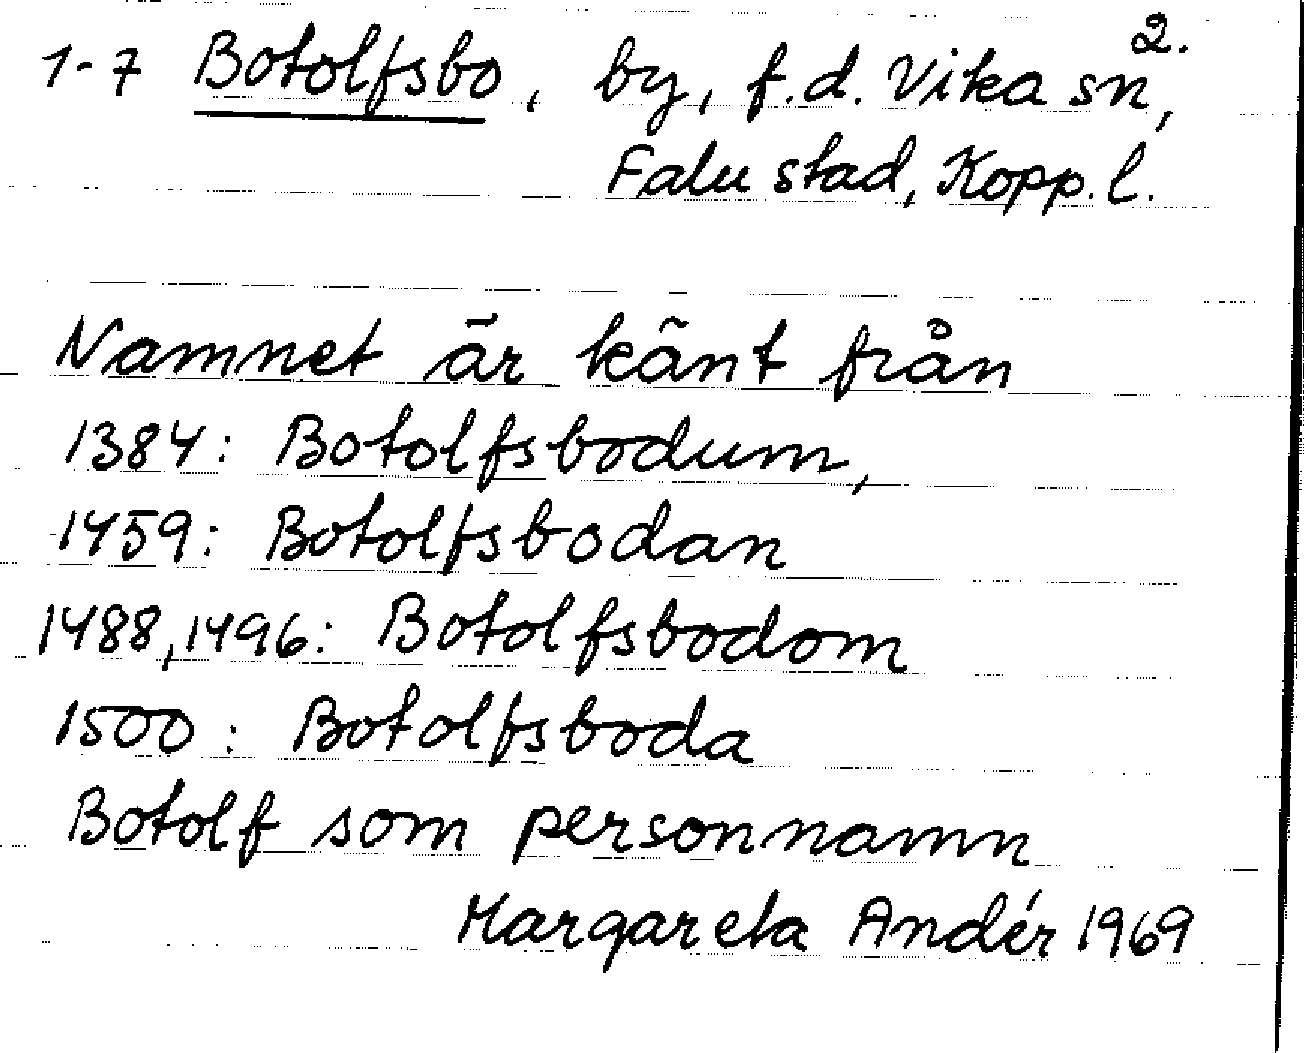 2.
1-7 Botolfsbo, by, f.d. Vika sn,
Falu stad, Kopp. l.
Namnet är känt från
1384: Botolfsbodum,
1459: Botolfsbodan
1488, 1496: Botolfsbodom
1500: Botolfsboda
Botolf som personnamn
Margareta Andér 1969